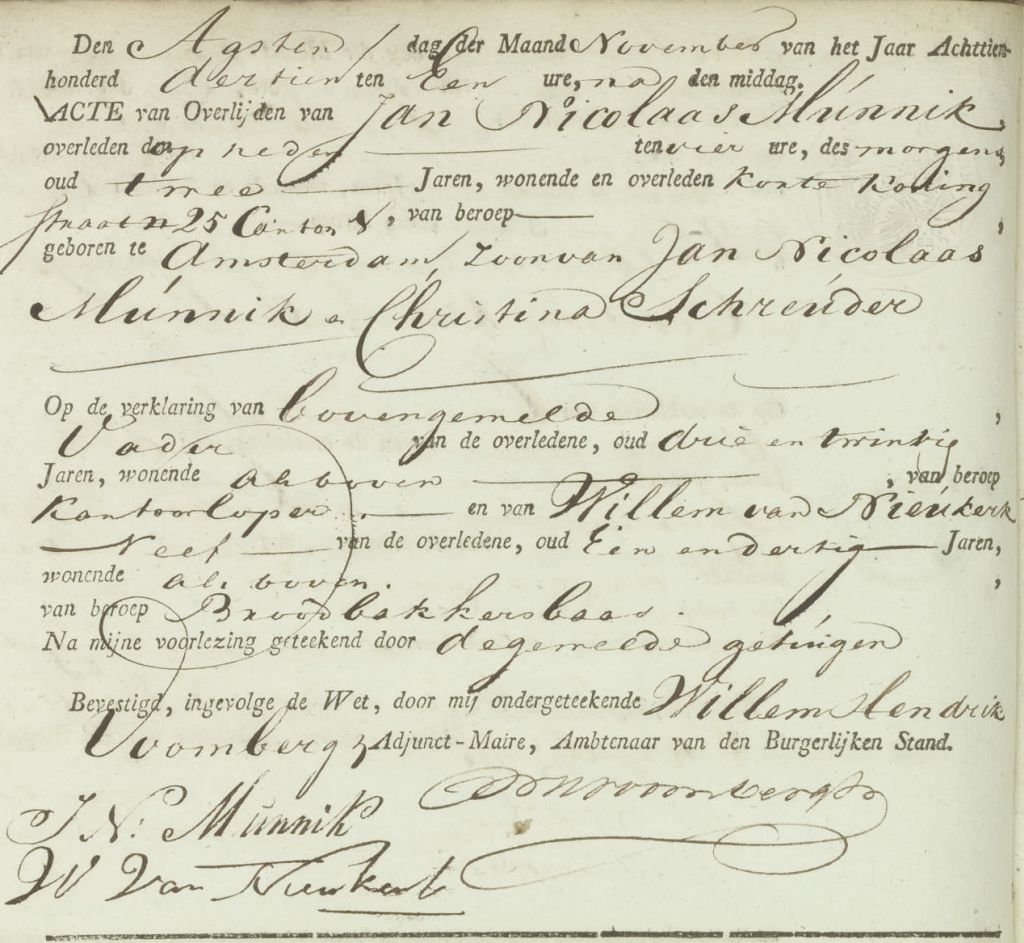 Den Agsten dag der Maand November van het Jaar Achttien-
honderd dertien ten Een ure, na den middag.
ACTE van Overlijden van Jan Nicolaas Munnik,
overleden den op heden ten vier ure, des morgens,
oud twee Jaren, wonende en overleden Korte Koning
straat n 25 Canton V, van beroep ,
geboren te Amsterdam, Zoon van Jan Nicolaas
Munnik en Christina Schreuder
Op de verklaring van bovengemelde ,
Vader van de overledene, oud drie en twintig
Jaren, wonende als boven , van beroep
Kantoorloper. en van Willem van Nieukerk
Neef van de overledene, oud Een en dertig Jaren,
wonende als boven. ,
van beroep Broodbakkersbaas.
Na mijne voorlezing geteekend door de gemelde getuigen
Bevestigd, ingevolge de Wet, door mij ondergeteekende Willem Hendrik
Vrombergh Adjunct-Maire, Ambtenaar van den Burgerlijken Stand.
J N: Munnik
W Van Nieukerk